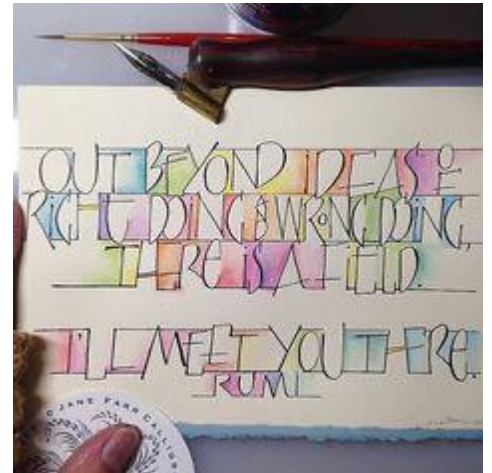 OUT BEYOND IDEAS OF
RiGHT DOiNG & WRONGDOiNG,
THERE iS A FiELD.
I'LL MEET YOU THERE.
RUMI
JANE FARR CALLIGR